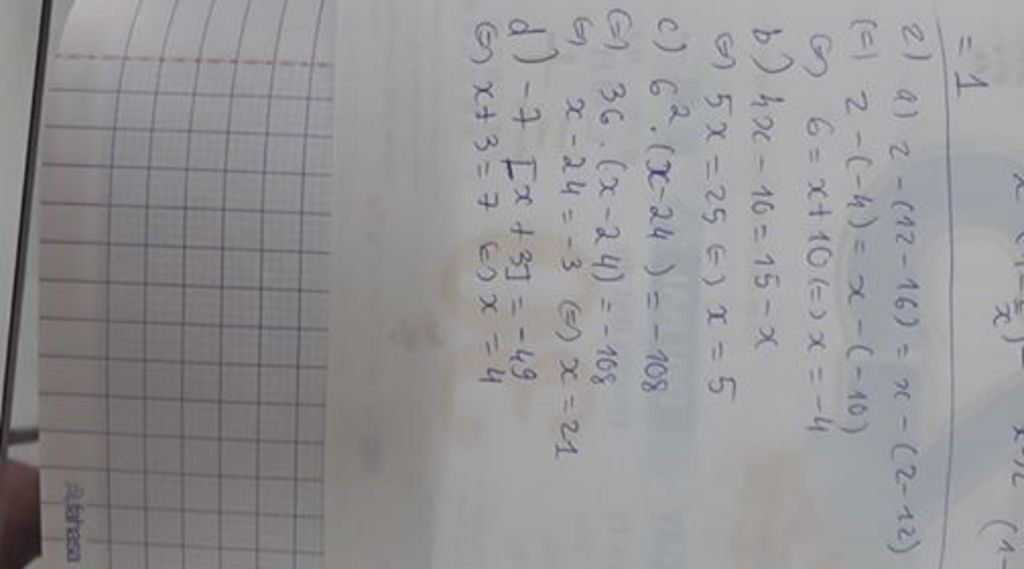 = 1
2) a) 2 - (12 - 16) = x - (2 - 12)
(=) 2 - (-4) = x - (-10)
(=) 6 = x + 10 (=) x = -4
b) 4x - 16 = 15 - x
(=) 5x = 25 (=) x = 5
c) 6². (x - 24) = -108
(=) 36. (x - 24) = -108
(=) x - 24 = -3 (=) x = 21
d) -7 [x + 3] = -49
(=) x + 3 = 7 (=) x = 4